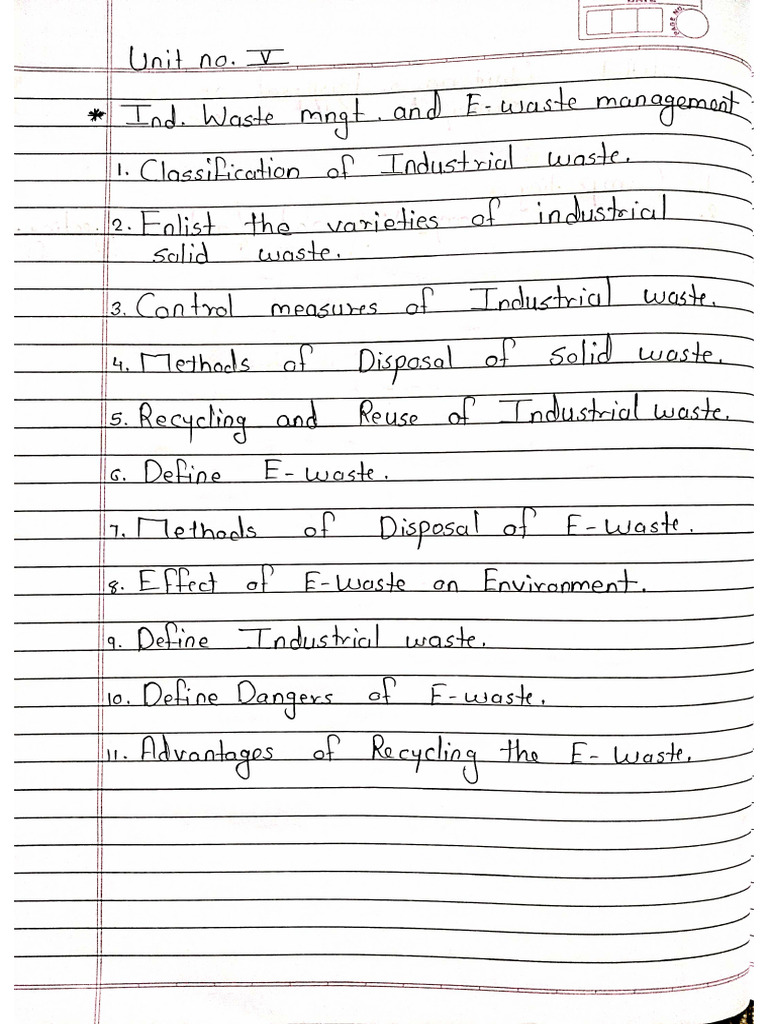 DATE
PAGE NO.
Unit no. V
* Ind. Waste mngt. and E-waste management
1. Classification of Industrial waste.
2. Enlist the varieties of industrial
solid waste.
3. Control measures of Industrial waste.
4. Methods of Disposal of solid waste.
5. Recycling and Reuse of Industrial waste.
6. Define E-waste.
7. Methods of Disposal of E-waste.
8. Effect of E-waste on Environment.
9. Define Industrial waste.
10. Define Dangers of E-waste.
11. Advantages of Recycling the E-waste.